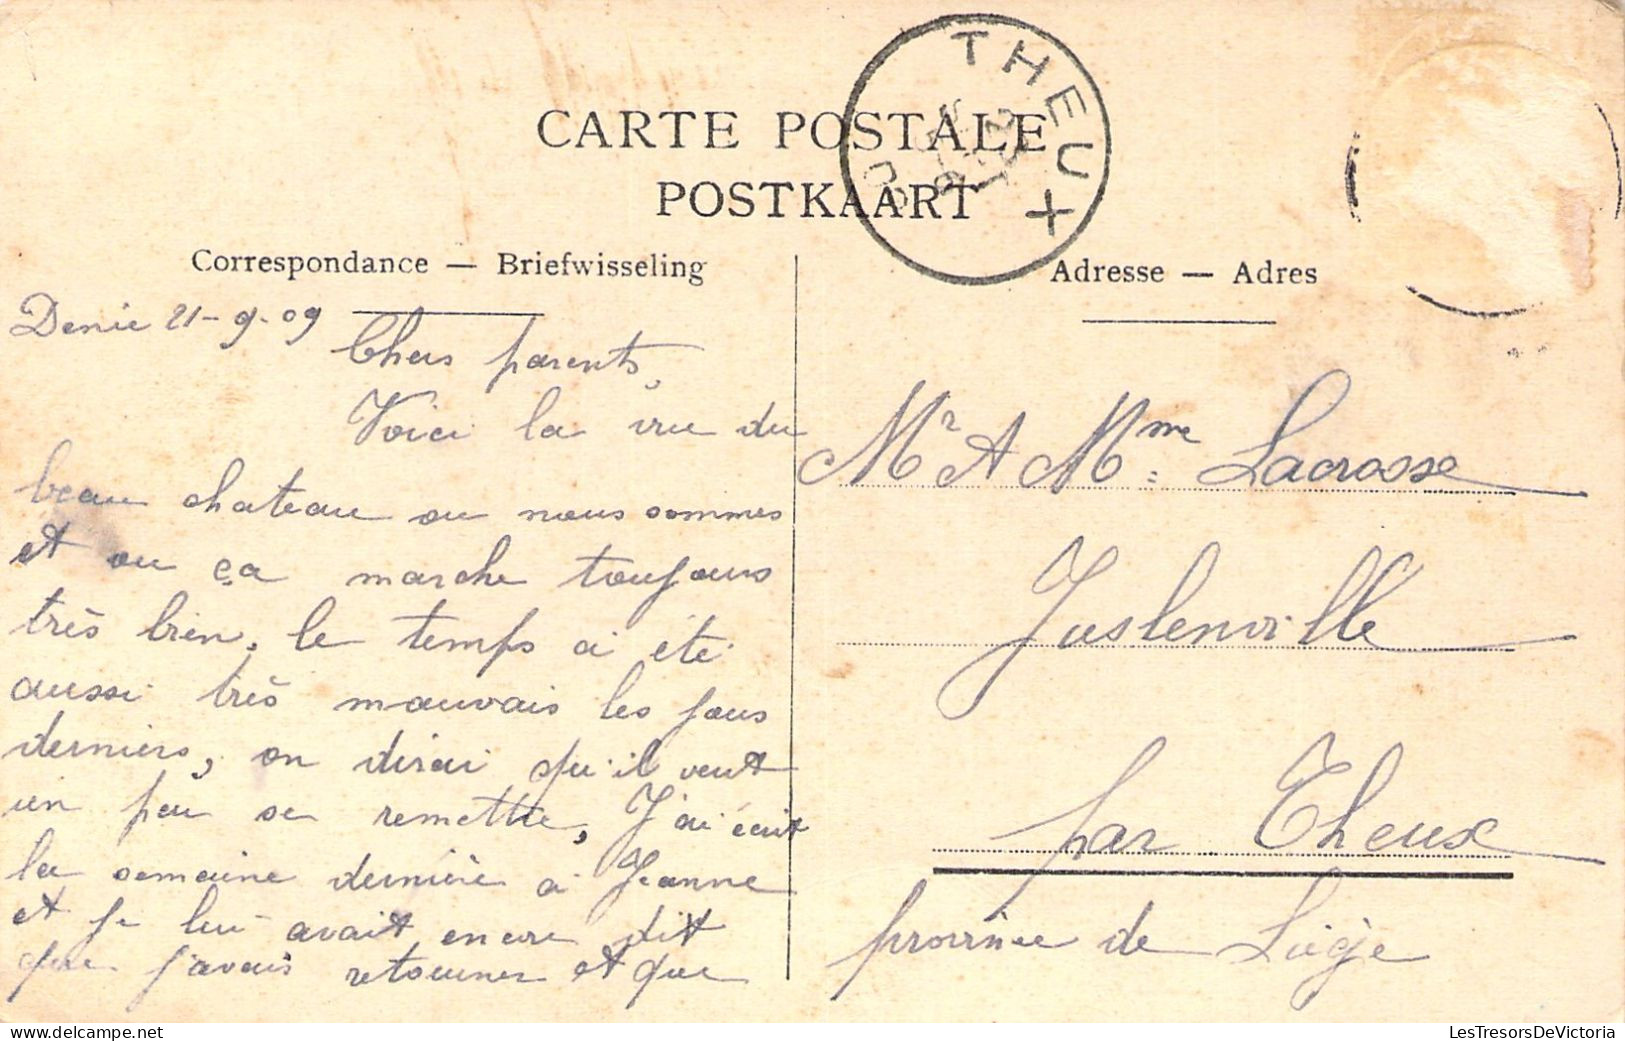 CARTE POSTALE
POSTKAART
THEUX
Correspondance — Briefwisseling
Denée 21-9-09
Chers parents,
Voici la vue du
beau chateau ou nous sommes
et ou ça marche toujours
très bien, le temps a été
aussi très mauvais les jours
derniers, on dirai qu'il veut
un peu se remettre, J'ai écrit
la semaine dernière a Jeanne
et je lui avait encore dit
que j'avais retourner et que
Adresse — Adres
Mr A Mme Lacrosse
Juslenville
par Theux
province de Liège
LesTresorsDeVictoria